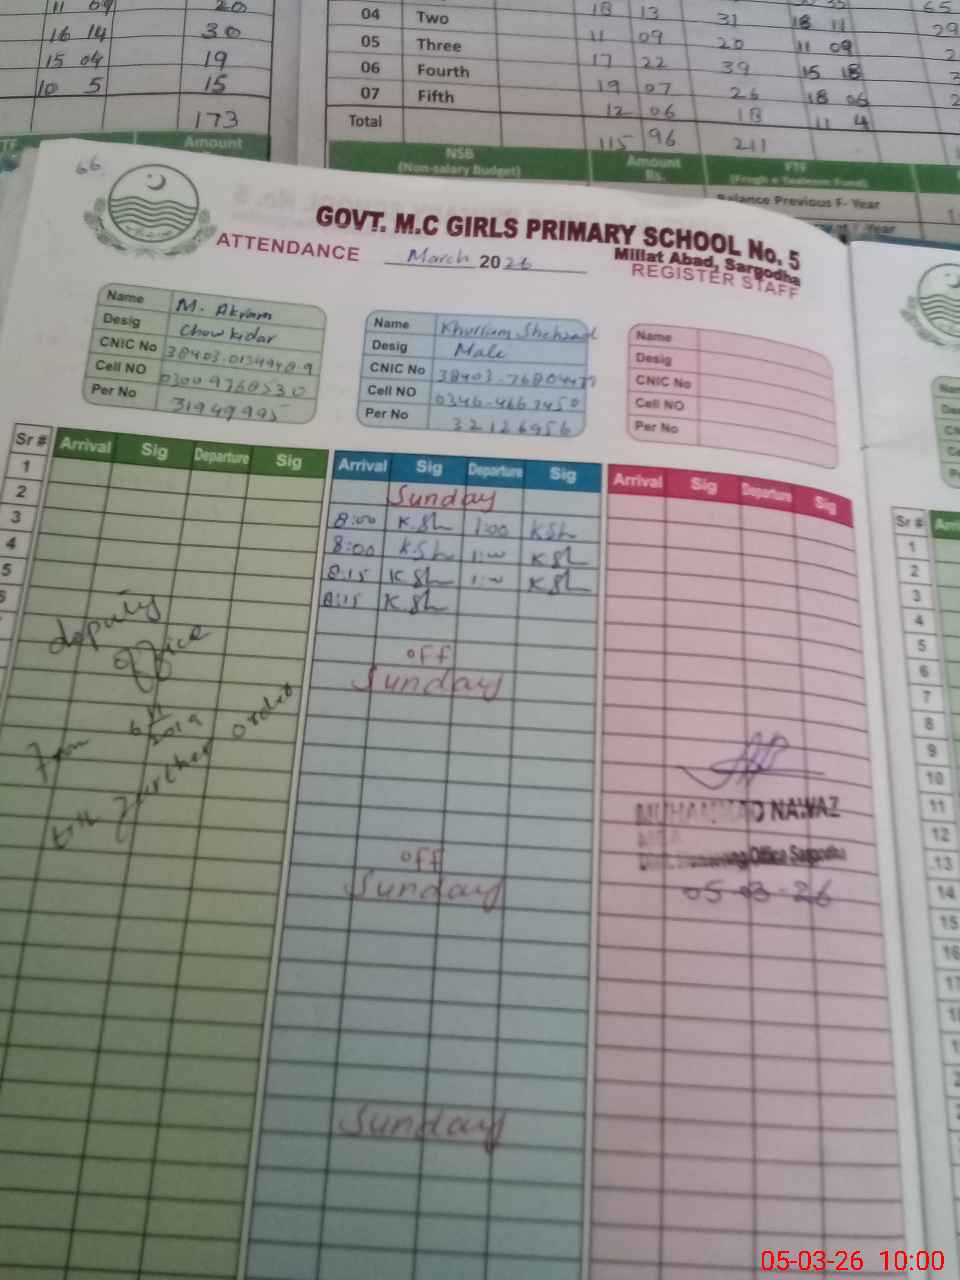 11 09 20
16 14 30
15 04 19
10 5 15
173
Amount
04 Two 18 13 31 18 11 29
05 Three 11 09 20 11 09
06 Fourth 17 22 39 15 18
07 Fifth 19 07 26 18 06
12 06 18 11 4
Total 115 96 211
NSB
(Non-salary Budget)
Amount
Rs.
FTF
Balance Previous F- Year
66
GOVT. M.C GIRLS PRIMARY SCHOOL No. 5
Millat Abad, Sargodha
ATTENDANCE March 2026 REGISTER STAFF
Name M. Akram
Desig Chowkidar
CNIC No
Cell NO 0300 9768530
Per No 31949995
Name Khurram Shehzad
Desig Male
CNIC No
Cell NO
Per No 32126956
Name
Desig
CNIC No
Cell NO
Per No
Sr # Arrival Sig Departure Sig Arrival Sig Departure Sig Arrival Sig Departure Sig
1 Sunday
2 8:00 K.Sh 1:00 KSh
3 8:00 KSh 1:00 KSh
4 8:15 KSh 1:00 KSh
5 8:15 KSh
6
deputy
office
From 6/11/2019
till further order
off
Sunday
off
Sunday
Sunday
MUHAMMAD NAWAZ
Office Sargodha
05-03-26
Sr #
1
2
3
4
5
6
7
8
9
10
11
12
13
14
15
16
05-03-26 10:00